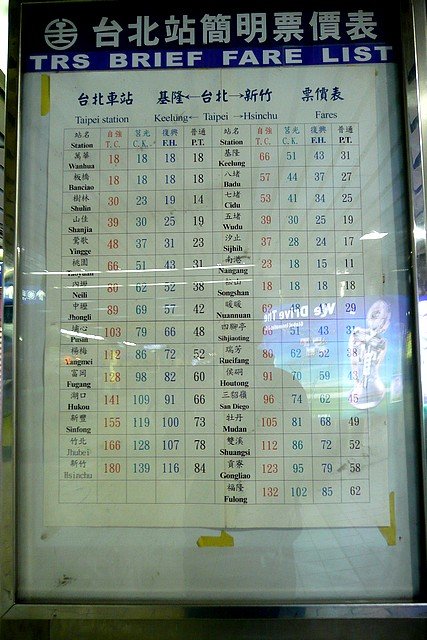 台北站簡明票價表
TRS BRIEF FARE LIST
台北車站 基隆←台北→新竹 票價表
Taipei station Keelung← Taipei →Hsinchu Fares
站名 自強 莒光 復興 普通 站名 自強 莒光 復興 普通
Station T.C. C.K. F.H. P.T. Station T.C. C.K. F.H. P.T.
萬華 18 18 18 18 基隆 66 51 43 31
Wanhua Keelung
板橋 18 18 18 18 八堵 57 44 37 27
Banciao Badu
樹林 30 23 19 14 七堵 53 41 34 25
Shulin Cidu
山佳 39 30 25 19 五堵 39 30 25 19
Shanjia Wudu
鶯歌 48 37 31 23 汐止 37 28 24 17
Yingge Sijhih
桃園 66 51 43 31 南港 23 18 15 11
Taoyuan Nangang
內壢 80 62 52 38 松山 18 18 18 18
Neili Songshan
中壢 89 69 57 42 暖暖 29
Jhongli Nuannuan
埔心 103 79 66 48 四腳亭 66 51 43 31
Pusin Sihjiaoting
楊梅 112 86 72 52 瑞芳 80 62 52 38
Yangmei Rueifang
富岡 128 98 82 60 侯硐 91 70 59 43
Fugang Houtong
湖口 141 109 91 66 三貂嶺 96 74 62 45
Hukou San Diego
新豐 155 119 100 73 牡丹 105 81 68 49
Sinfong Mudan
竹北 166 128 107 78 雙溪 112 86 72 52
Jhubei Shuangsi
新竹 180 139 116 84 貢寮 123 95 79 58
Hsinchu Gongliao
福隆 132 102 85 62
Fulong
We Drive